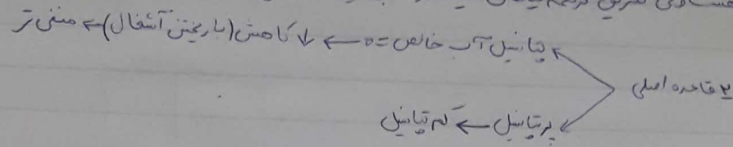 پتانسیل آب خالص = ۰ ← ↓ کاهش (با ریختن آشغال) ← منفی تر
۲ قاعده اصلی
پر پتانسیل ← کم پتانسیل